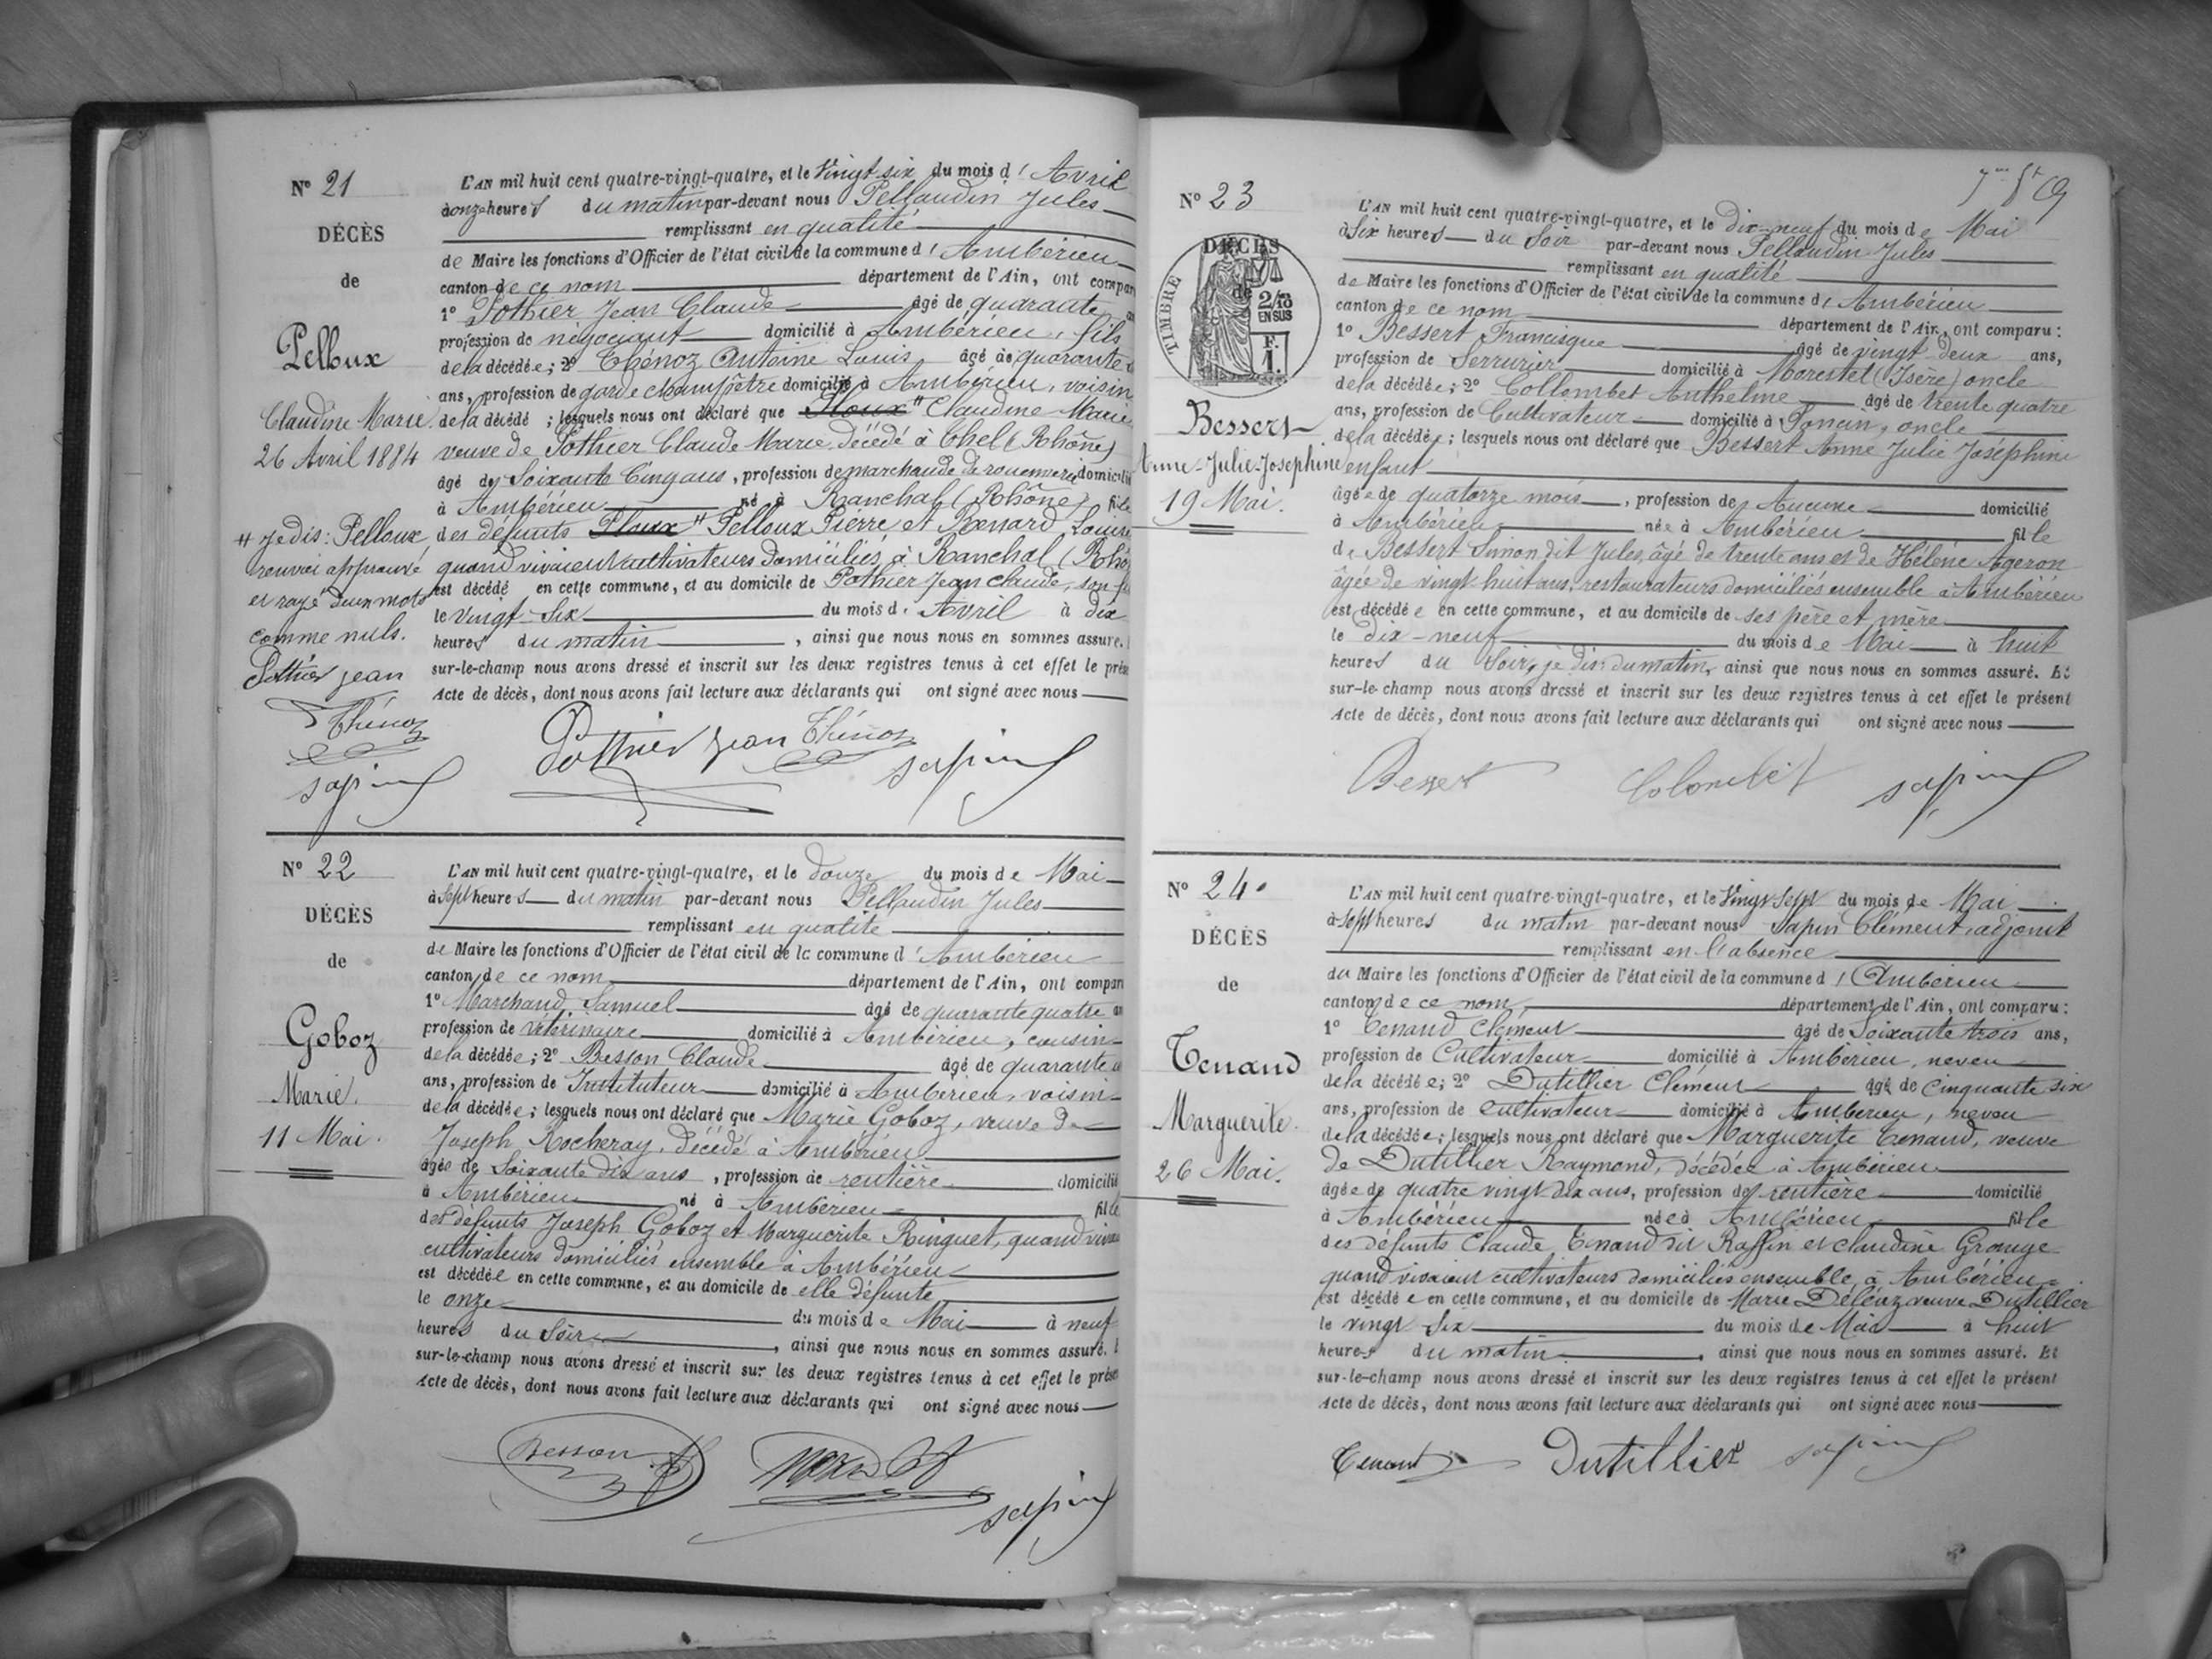 N° 21
DÉCÈS
de
Pelloux
Claudine Marie
26 Avril 1884
# je dis: Pelloux
renvoi approuvé
et rayé deux mots
comme nuls.
Pothier Jean
Thénoz
sapin
L'AN mil huit cent quatre-vingt-quatre, et le Vingt six du mois d' Avril
à onze heures du matin par-devant nous Pellaudin Jules
remplissant en qualité
de Maire les fonctions d'Officier de l'état civil de la commune d' Ambérieu
canton de ce nom département de l'Ain, ont compar
1° Pothier Jean Claude âgé de quarante
profession de négociant domicilié à Ambérieu, fils
de la décédée; 2° Thénoz Antoine Louis âgé de quarante
ans, profession de garde champêtre domicilié à Ambérieu, voisin
de la décédé ; lesquels nous ont déclaré que Ploux # Claudine Marie
veuve de Pothier Claude Marie décédé à Thel (Rhône)
âgé de Soixante Cinq ans, profession de marchande de rouennerie domicilié
à Ambérieu né à Ranchal (Rhône) fille
des défunts Ploux # Pelloux Pierre et Bénard Louise
quand vivaient cultivateurs domiciliés à Ranchal (Rhô
est décédé en cette commune, et au domicile de Pothier Jean Claude, son fi
le Vingt-Six du mois d' Avril à dix
heures du matin, ainsi que nous nous en sommes assuré.
sur-le-champ nous avons dressé et inscrit sur les deux registres tenus à cet effet le prés
Acte de décès, dont nous avons fait lecture aux déclarants qui ont signé avec nous
Pothier Jean Thénoz sapin
N° 22
DÉCÈS
de
Goboz
Marie.
11 Mai.
L'AN mil huit cent quatre-vingt-quatre, et le douze du mois de Mai
à sept heures du matin par-devant nous Pellaudin Jules
remplissant en qualité
de Maire les fonctions d'Officier de l'état civil de la commune d' Ambérieu
canton de ce nom département de l'Ain, ont compar
1° Marchand Samuel âgé de quarante quatre an
profession de vétérinaire domicilié à Ambérieu, cousin
de la décédée; 2° Besson Claude âgé de quarante
ans, profession de Instituteur domicilié à Ambérieu, voisin
de la décédée; lesquels nous ont déclaré que Marie Goboz, veuve de
Joseph Rocheray, décédé à Ambérieu
âgée de Soixante dix ans, profession de rentière domicilié
à Ambérieu né à Ambérieu fille
des défunts Joseph Goboz et Marguerite Ringuet, quand vivaient
cultivateurs domiciliés ensemble à Ambérieu
est décédée en cette commune, et au domicile de elle défunte
le onze du mois de Mai à neuf
heures du Soir, ainsi que nous nous en sommes assuré.
sur-le-champ nous avons dressé et inscrit sur les deux registres tenus à cet effet le prése
Acte de décès, dont nous avons fait lecture aux déclarants qui ont signé avec nous
Besson
sapin
N° 23
DÉCÈS
de
TIMBRE
2/10
EN SUS
F.
1.
Bessert
Anne-Julie-Joséphine
19 Mai.
L'AN mil huit cent quatre-vingt-quatre, et le Dix-neuf du mois de Mai
à Six heures du Soir par-devant nous Pellaudin Jules
remplissant en qualité
de Maire les fonctions d'Officier de l'état civil de la commune d' Ambérieu
canton de ce nom département de l'Ain, ont comparu :
1° Bessert Francisque âgé de vingt deux ans,
profession de Serrurier domicilié à Morestel (Isère) oncle
de la décédée; 2° Collombet Anthelme âgé de trente quatre
ans, profession de Cultivateur domicilié à Jonan, oncle
de la décédée; lesquels nous ont déclaré que Bessert Anne Julie Joséphine
enfant
âgée de quatorze mois, profession de Aucune domicilié
à Ambérieu née à Ambérieu fille
de Bessert Simon dit Jules, âgé de trente ans et de Hélène Ageron
âgée de vingt huit ans, restaurateurs domiciliés ensemble à Ambérieu
est décédée en cette commune, et au domicile de ses père et mère
le dix-neuf du mois de Mai à huit
heures du Soir, je dis du matin, ainsi que nous nous en sommes assuré. Et
sur-le-champ nous avons dressé et inscrit sur les deux registres tenus à cet effet le présent
Acte de décès, dont nous avons fait lecture aux déclarants qui ont signé avec nous
Bessert Colombet sapin
N° 24.
DÉCÈS
de
Tenand
Marguerite.
26 Mai.
L'AN mil huit cent quatre-vingt-quatre, et le Vingt Sept du mois de Mai
à sept heures du matin par-devant nous Sapin Clément, adjoint
remplissant en l'absence
du Maire les fonctions d'Officier de l'état civil de la commune d' Ambérieu
canton de ce nom département de l'Ain, ont comparu :
1° Tenand Clément âgé de Soixante trois ans,
profession de Cultivateur domicilié à Ambérieu, neveu
de la décédée; 2° Dutillier Clément âgé de cinquante six
ans, profession de cultivateur domicilié à Ambérieu, neveu
de la décédée; lesquels nous ont déclaré que Marguerite Tenand, veuve
de Dutillier Raymond, décédée à Ambérieu
âgée de quatre vingt dix ans, profession de rentière domicilié
à Ambérieu née à Ambérieu fille
des défunts Claude Tenand dit Raffin et Claudine Grange
quand vivaient cultivateurs domiciliés ensemble à Ambérieu
est décédée en cette commune, et au domicile de Marie Déléaz veuve Dutillier
le vingt Six du mois de Mai à huit
heures du matin, ainsi que nous nous en sommes assuré. Et
sur-le-champ nous avons dressé et inscrit sur les deux registres tenus à cet effet le présent
Acte de décès, dont nous avons fait lecture aux déclarants qui ont signé avec nous
Tenand Dutillier sapin